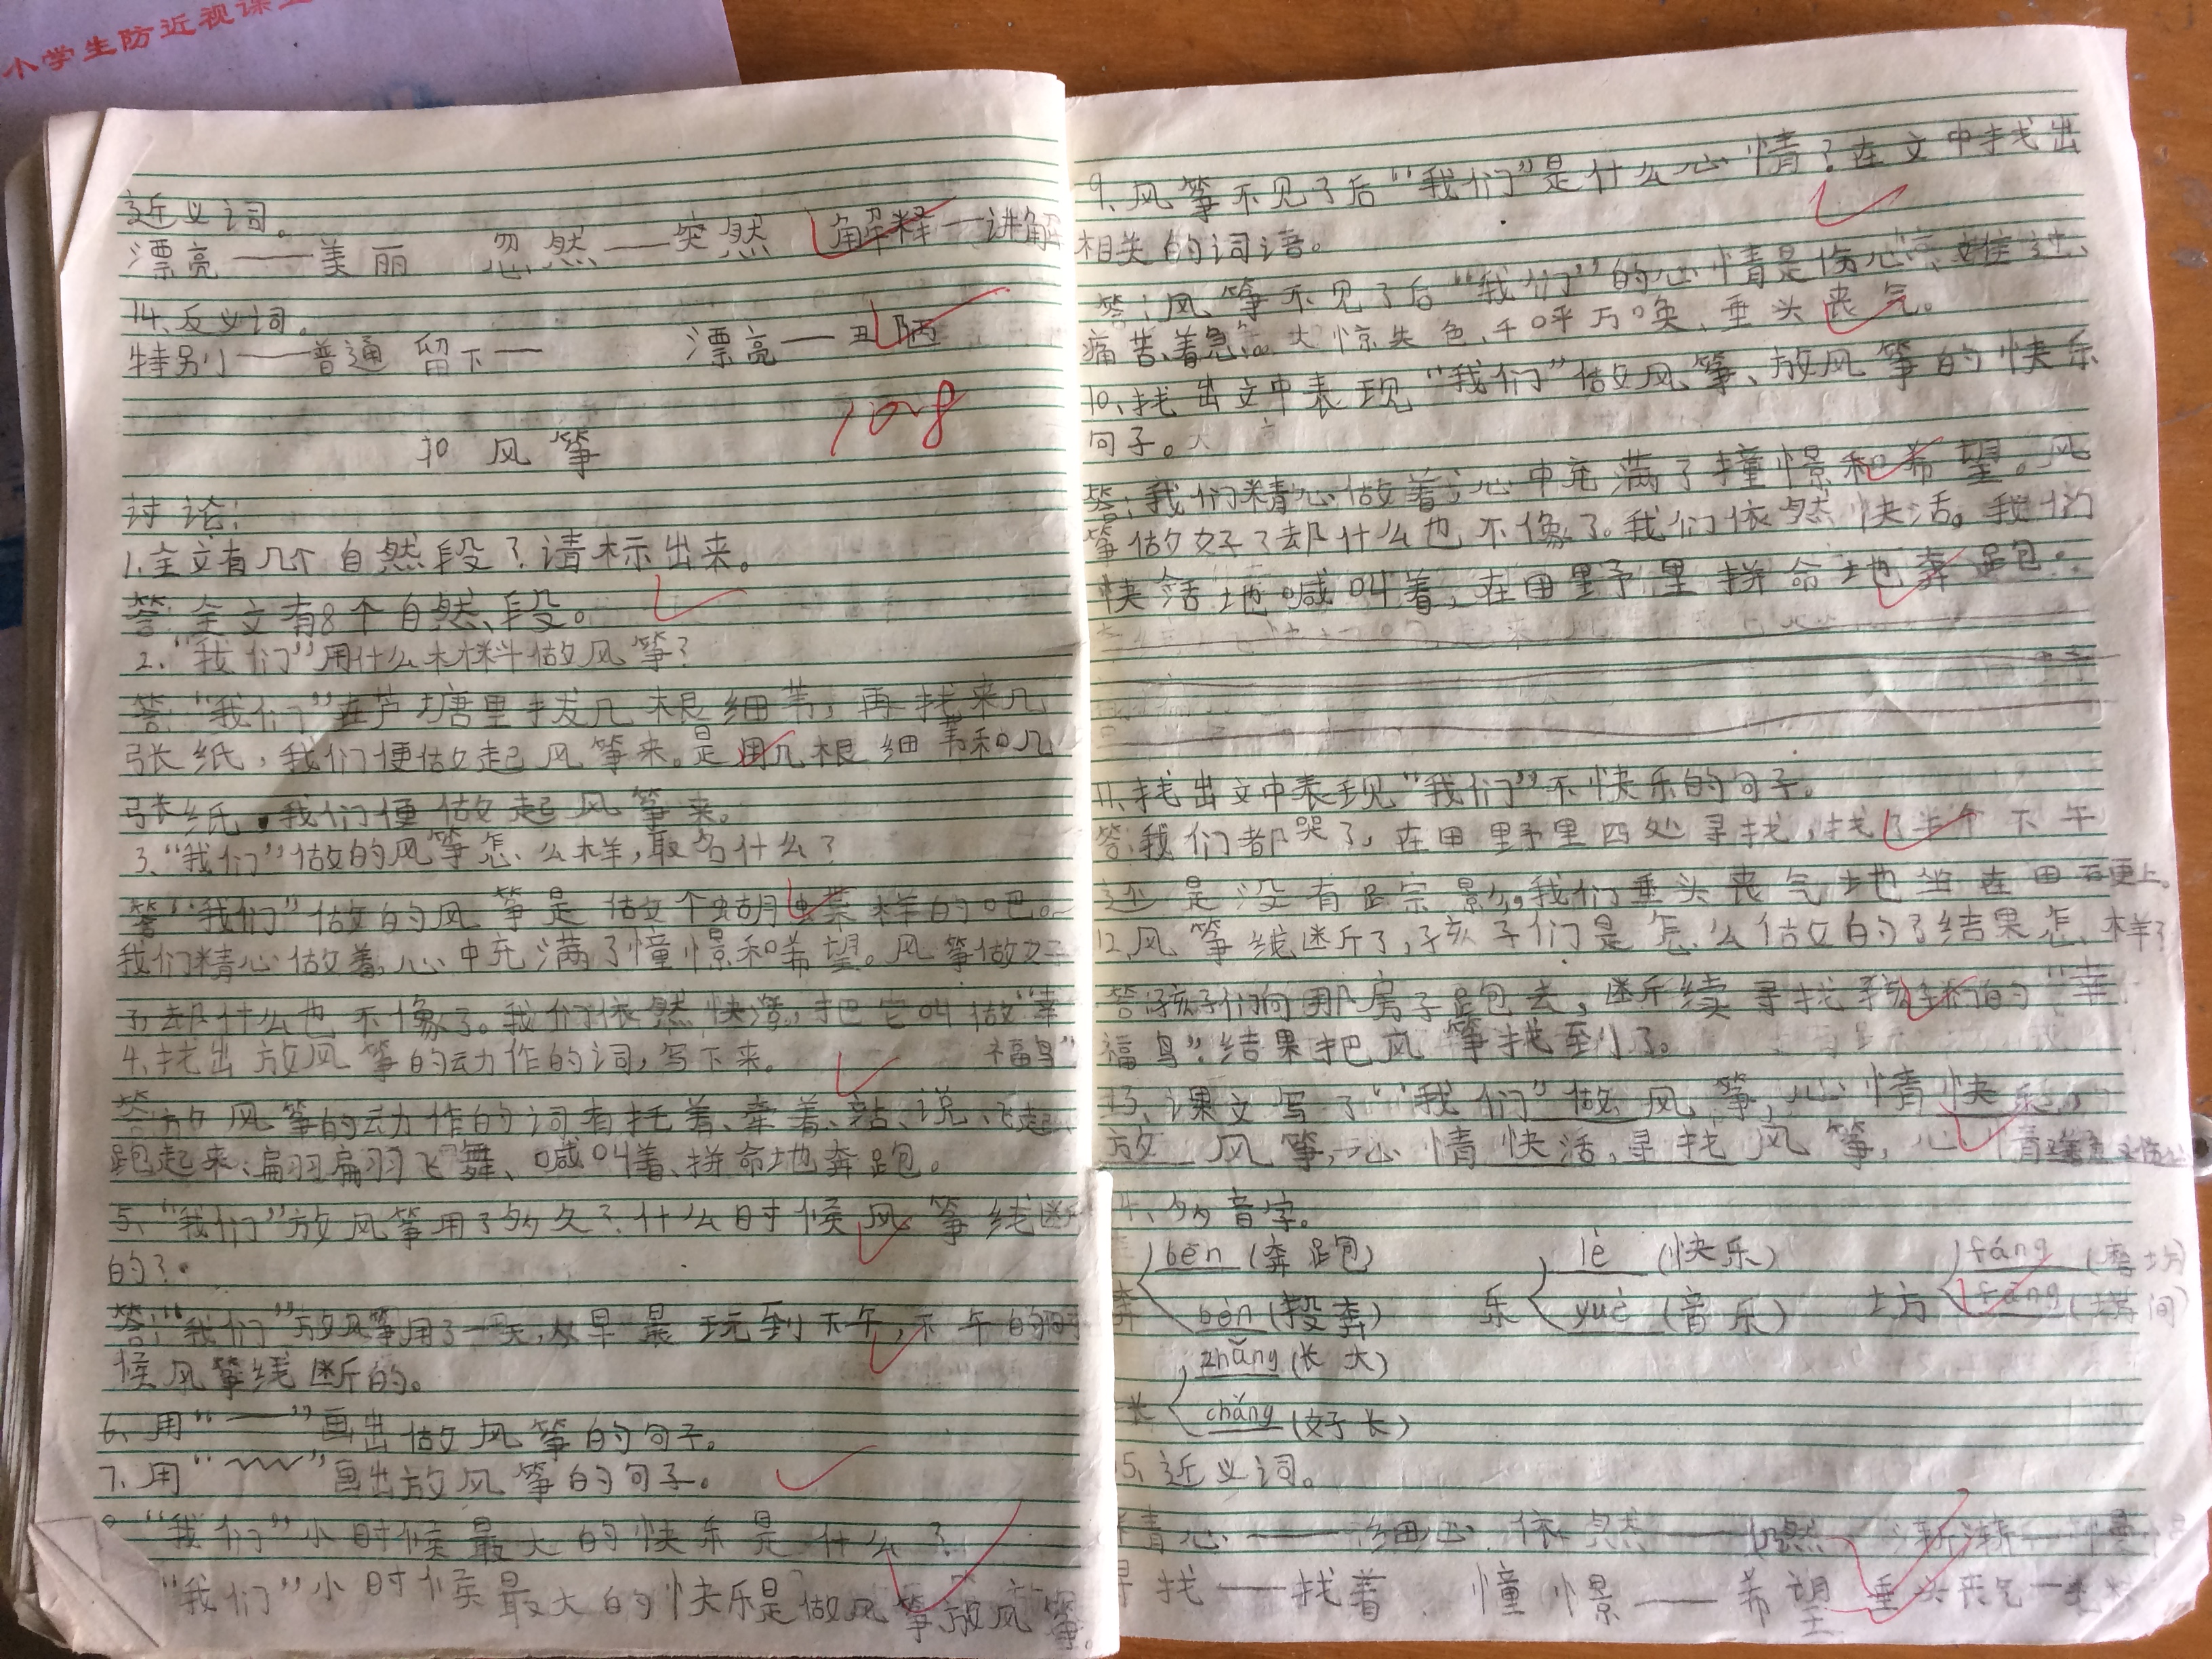 小学生防近视课
近义词。
漂亮——美丽 忽然——突然 解释—讲解
14、反义词。
特别——普通 留下— 漂亮—丑陋
10~8
10 风筝
讨论:
1.全文有几个自然段?请标出来。
答:全文有8个自然段。
2、“我们”用什么材料做风筝?
答:“我们”在芦塘里拔几根细苇,再找来几
张纸,我们便做起风筝来。是用几根细苇和几
张纸。我们便做起风筝来。
3、“我们”做的风筝怎么样,取名什么?
答“我们”做的风筝是做个蝴蝶样的吧。
我们精心做着,心中充满了憧憬和希望。风筝做好
了却什么也不像了。我们依然快活,把它叫做“幸
福鸟”
4、找出放风筝的动作的词,写下来。
答:放风筝的动作的词有托着、牵着、说、飞起、
跑起来、扁羽扁羽飞舞、喊叫着、拼命地奔跑。
5、“我们”放风筝用了多久?什么时候风筝线断
的?
答:“我们”放风筝用了一天,从早晨玩到下午,下午的时
候风筝线断的。
6、用“——”画出做风筝的句子。
7、用“﹏﹏”画出放风筝的句子。
“我们”小时候最大的快乐是什么?
“我们”小时候最大的快乐是做风筝、放风筝。
9、风筝不见了后“我们”是什么心情?在文中找出
相关的词语。
答:风筝不见了后“我们”的心情是伤心、难过、
痛苦、着急。大惊失色,千呼万唤、垂头丧气。
10、找出文中表现“我们”做风筝、放风筝的快乐
句子。
答:我们精心做着,心中充满了撞憬和希望。风
筝做好了却什么也不像了。我们依然快活。我们
快活地喊叫着,在田野里拼命地奔跑。
11、找出文中表现“我们”不快乐的句子。
答:我们都哭了,在田野里四处寻找,找了半个下午
还是没有踪影。我们垂头丧气地坐在田埂上。
12、风筝线断了,孩子们是怎么做的?结果怎样?
答:孩子们向那房子跑去,继续寻找我们的“幸
福鸟”。结果把风筝找到了。
13、课文写了“我们”做风筝,心情快乐,
放风筝,心情快活,寻找风筝,心情
4、多音字。
bēn (奔跑) lè (快乐) fáng (磨坊)
奔 bèn (投奔) 乐 yuè (音乐) 坊 fāng
zhǎng (长大)
长 cháng (好长)
5、近义词。
精心——细心 依然——仍然 渐渐—
寻找——找着 憧憬——希望 垂头丧气—